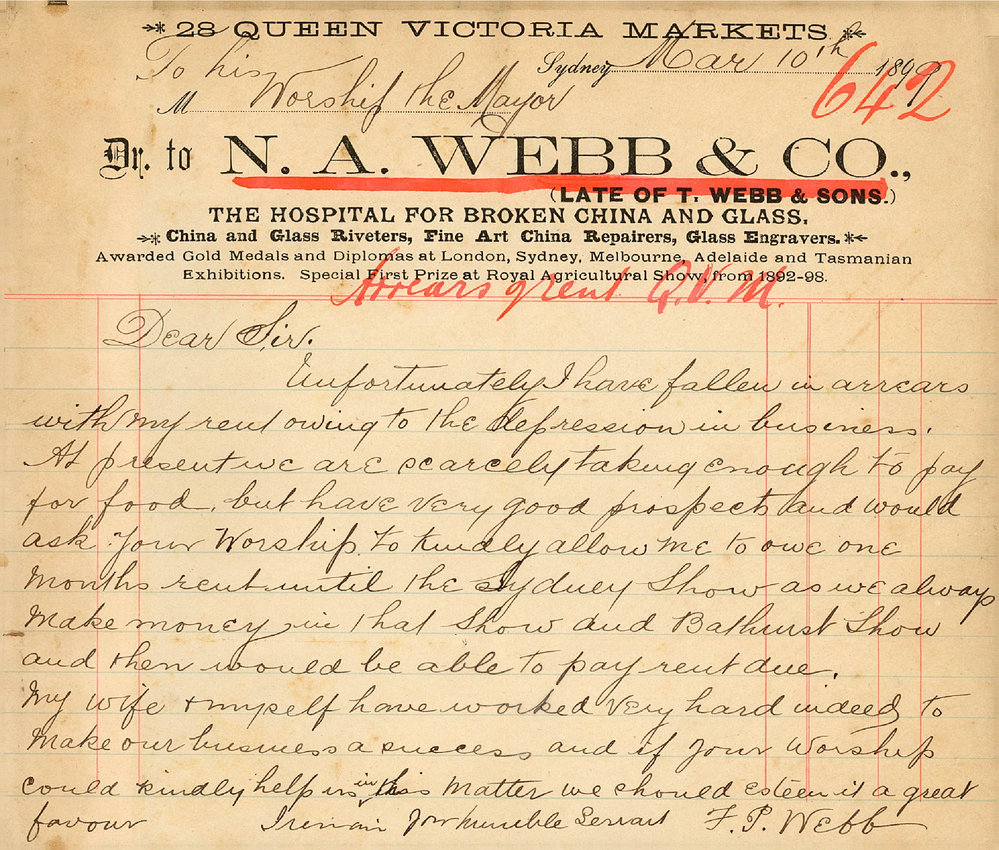 28 QUEEN VICTORIA MARKETS
Sydney Mar 10th 1899
642
To his
M Worship the Mayor
Dr. to N. A. WEBB & CO.,
(LATE OF T. WEBB & SONS.)
THE HOSPITAL FOR BROKEN CHINA AND GLASS.
China and Glass Riveters, Fine Art China Repairers, Glass Engravers.
Awarded Gold Medals and Diplomas at London, Sydney, Melbourne, Adelaide and Tasmanian
Exhibitions. Special First Prize at Royal Agricultural Show, from 1892-98.
Arrears of rent Q.V.M.
Dear Sir.
Unfortunately I have fallen in arrears
with my rent owing to the depression in business.
At present we are scarcely taking enough to pay
for food, but have very good prospects and would
ask Your Worship to kindly allow me to owe one
months rent until the Sydney Show as we always
make money in that Show and Bathurst Show
and then would be able to pay rent due.
My wife & myself have worked very hard indeed to
make our business a success and if Your Worship
could kindly help us in this matter we should esteem it a great
favour I remain Your humble Servant F. P. Webb